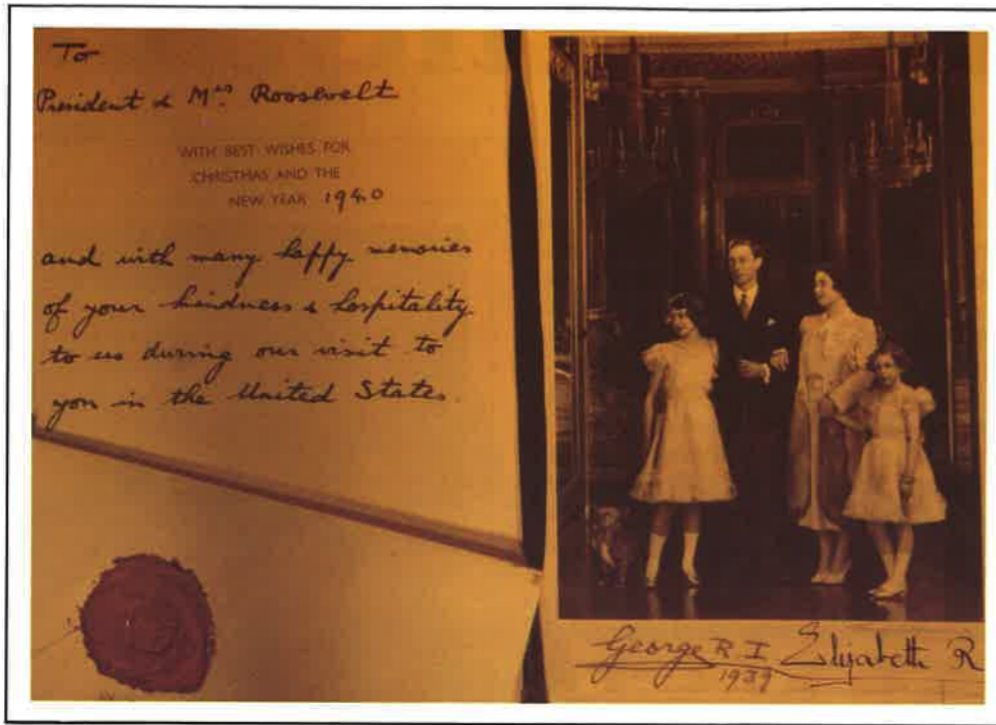 To
President & Mrs Roosevelt
WITH BEST WISHES FOR
CHRISTMAS AND THE
NEW YEAR 1940
and with many happy memories
of your kindness & hospitality
to us during our visit to
you in the United States.
George R I Elizabeth R
1939